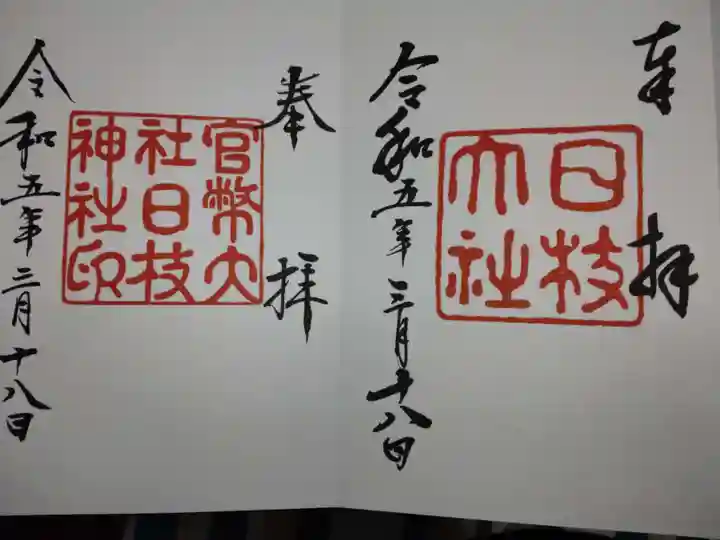 奉拝
日枝
大社
令和五年三月十八日
奉拝
官幣大
社日枝
神社印
令和五年三月十八日